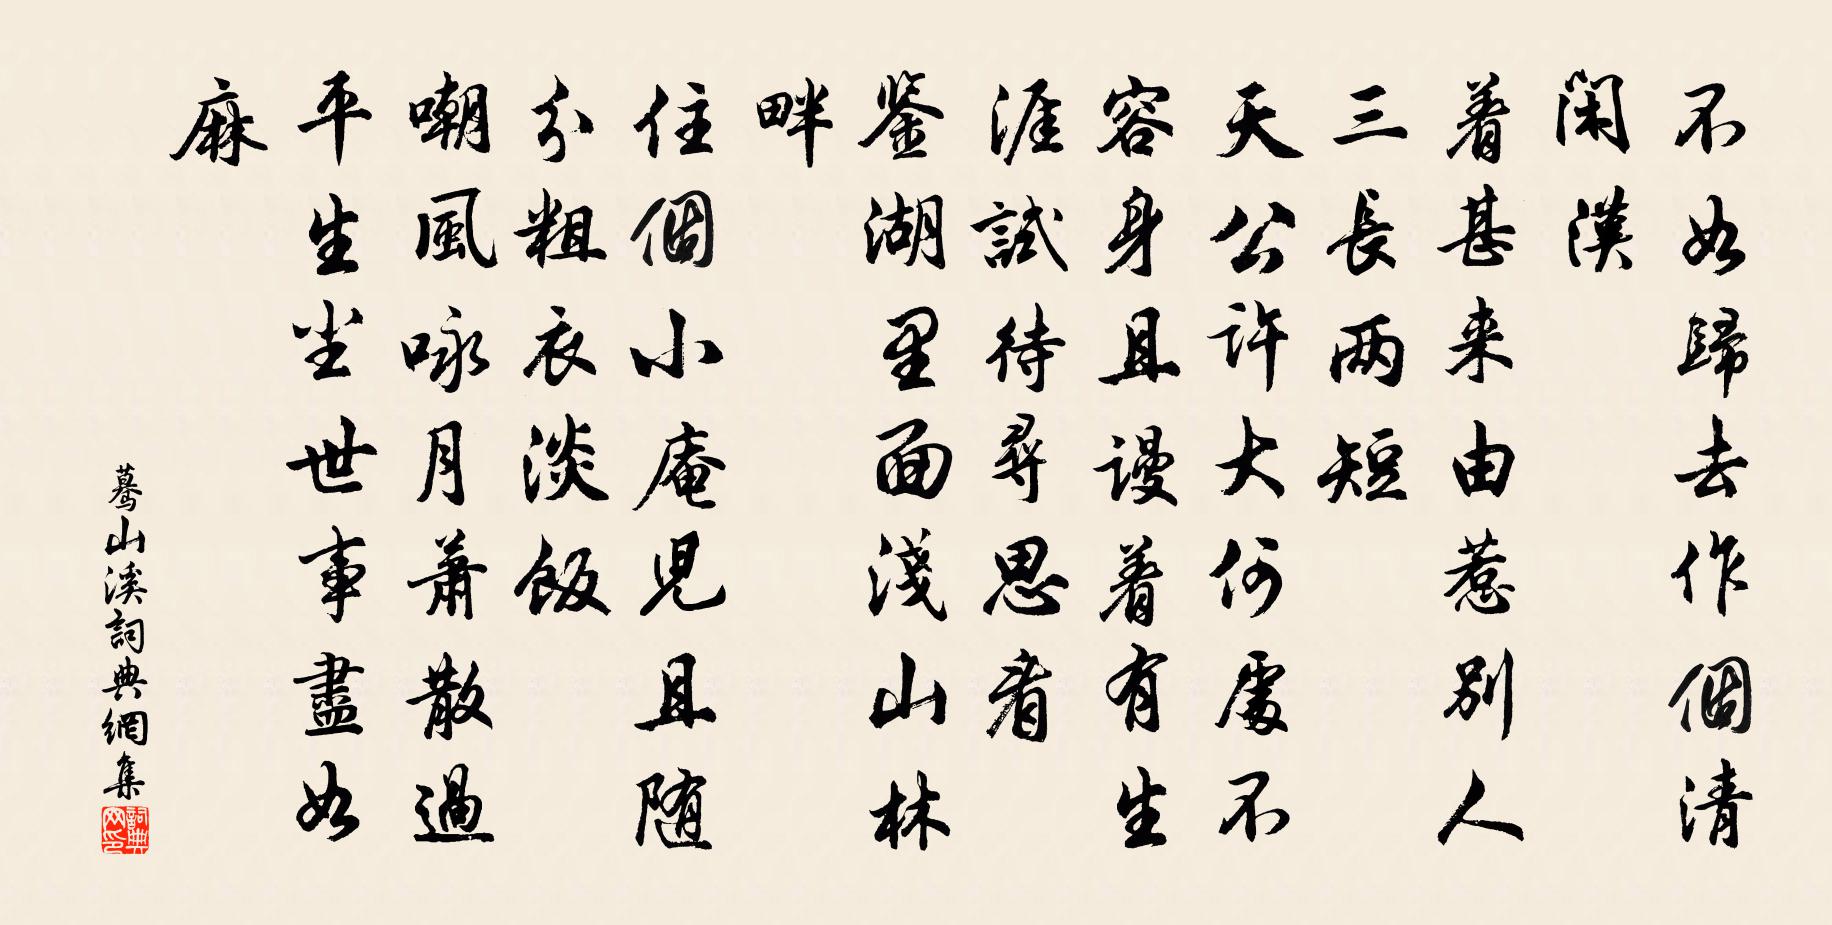 不如歸去作個清
閑漢
着甚来由惹別人
三長兩短
天公許大何處不
容身且謾着有生
涯試待尋思看
鉴湖里面淺山林
畔
住個小庵児且随
分粗衣淡飯
嘲風咏月蕭散過
平生坐世事盡如
麻
驀山溪詞典網集
詞典
網印